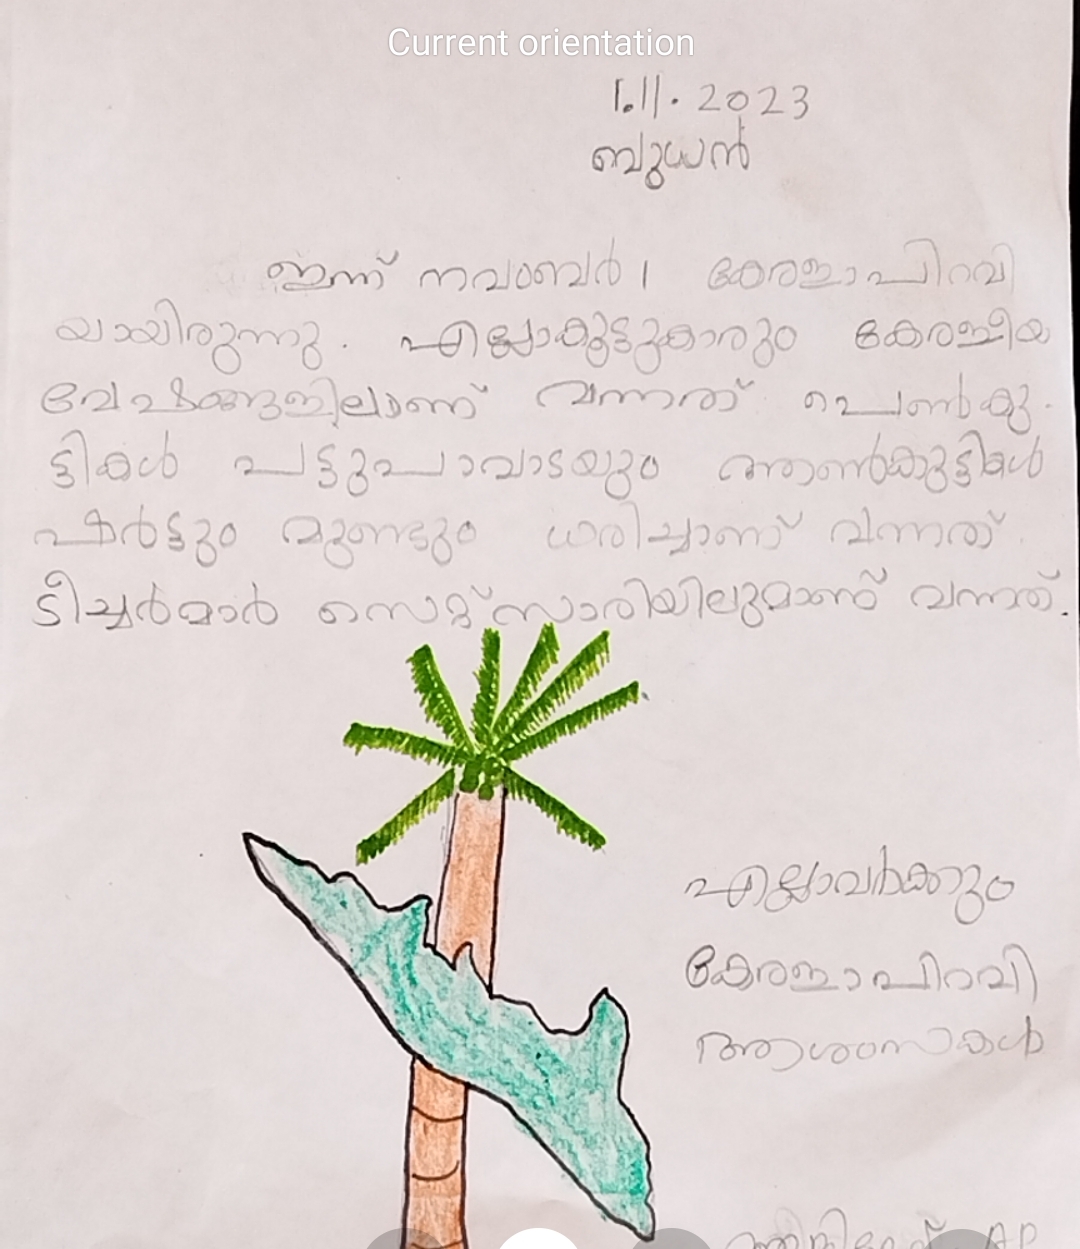 Current orientation
1.11.2023
ബുധൻ
ഇന്ന് നവംബർ 1 കേരളാപിറവി
യായിരുന്നു. എല്ലാകുട്ടുകാരും കേരളീയ
വേഷങ്ങളിലാണ് വന്നത് പെൺകു
ട്ടികൾ പട്ടുപാവാടയും ആൺകുട്ടികൾ
ഷർട്ടും മുണ്ടും ധരിച്ചാണ് വന്നത്.
ടീച്ചർമാർ സെറ്റ് സാരിയിലുമാണ് വന്നത്.
എല്ലാവർക്കും
കേരളാപിറവി
ആശംസകൾ
AP